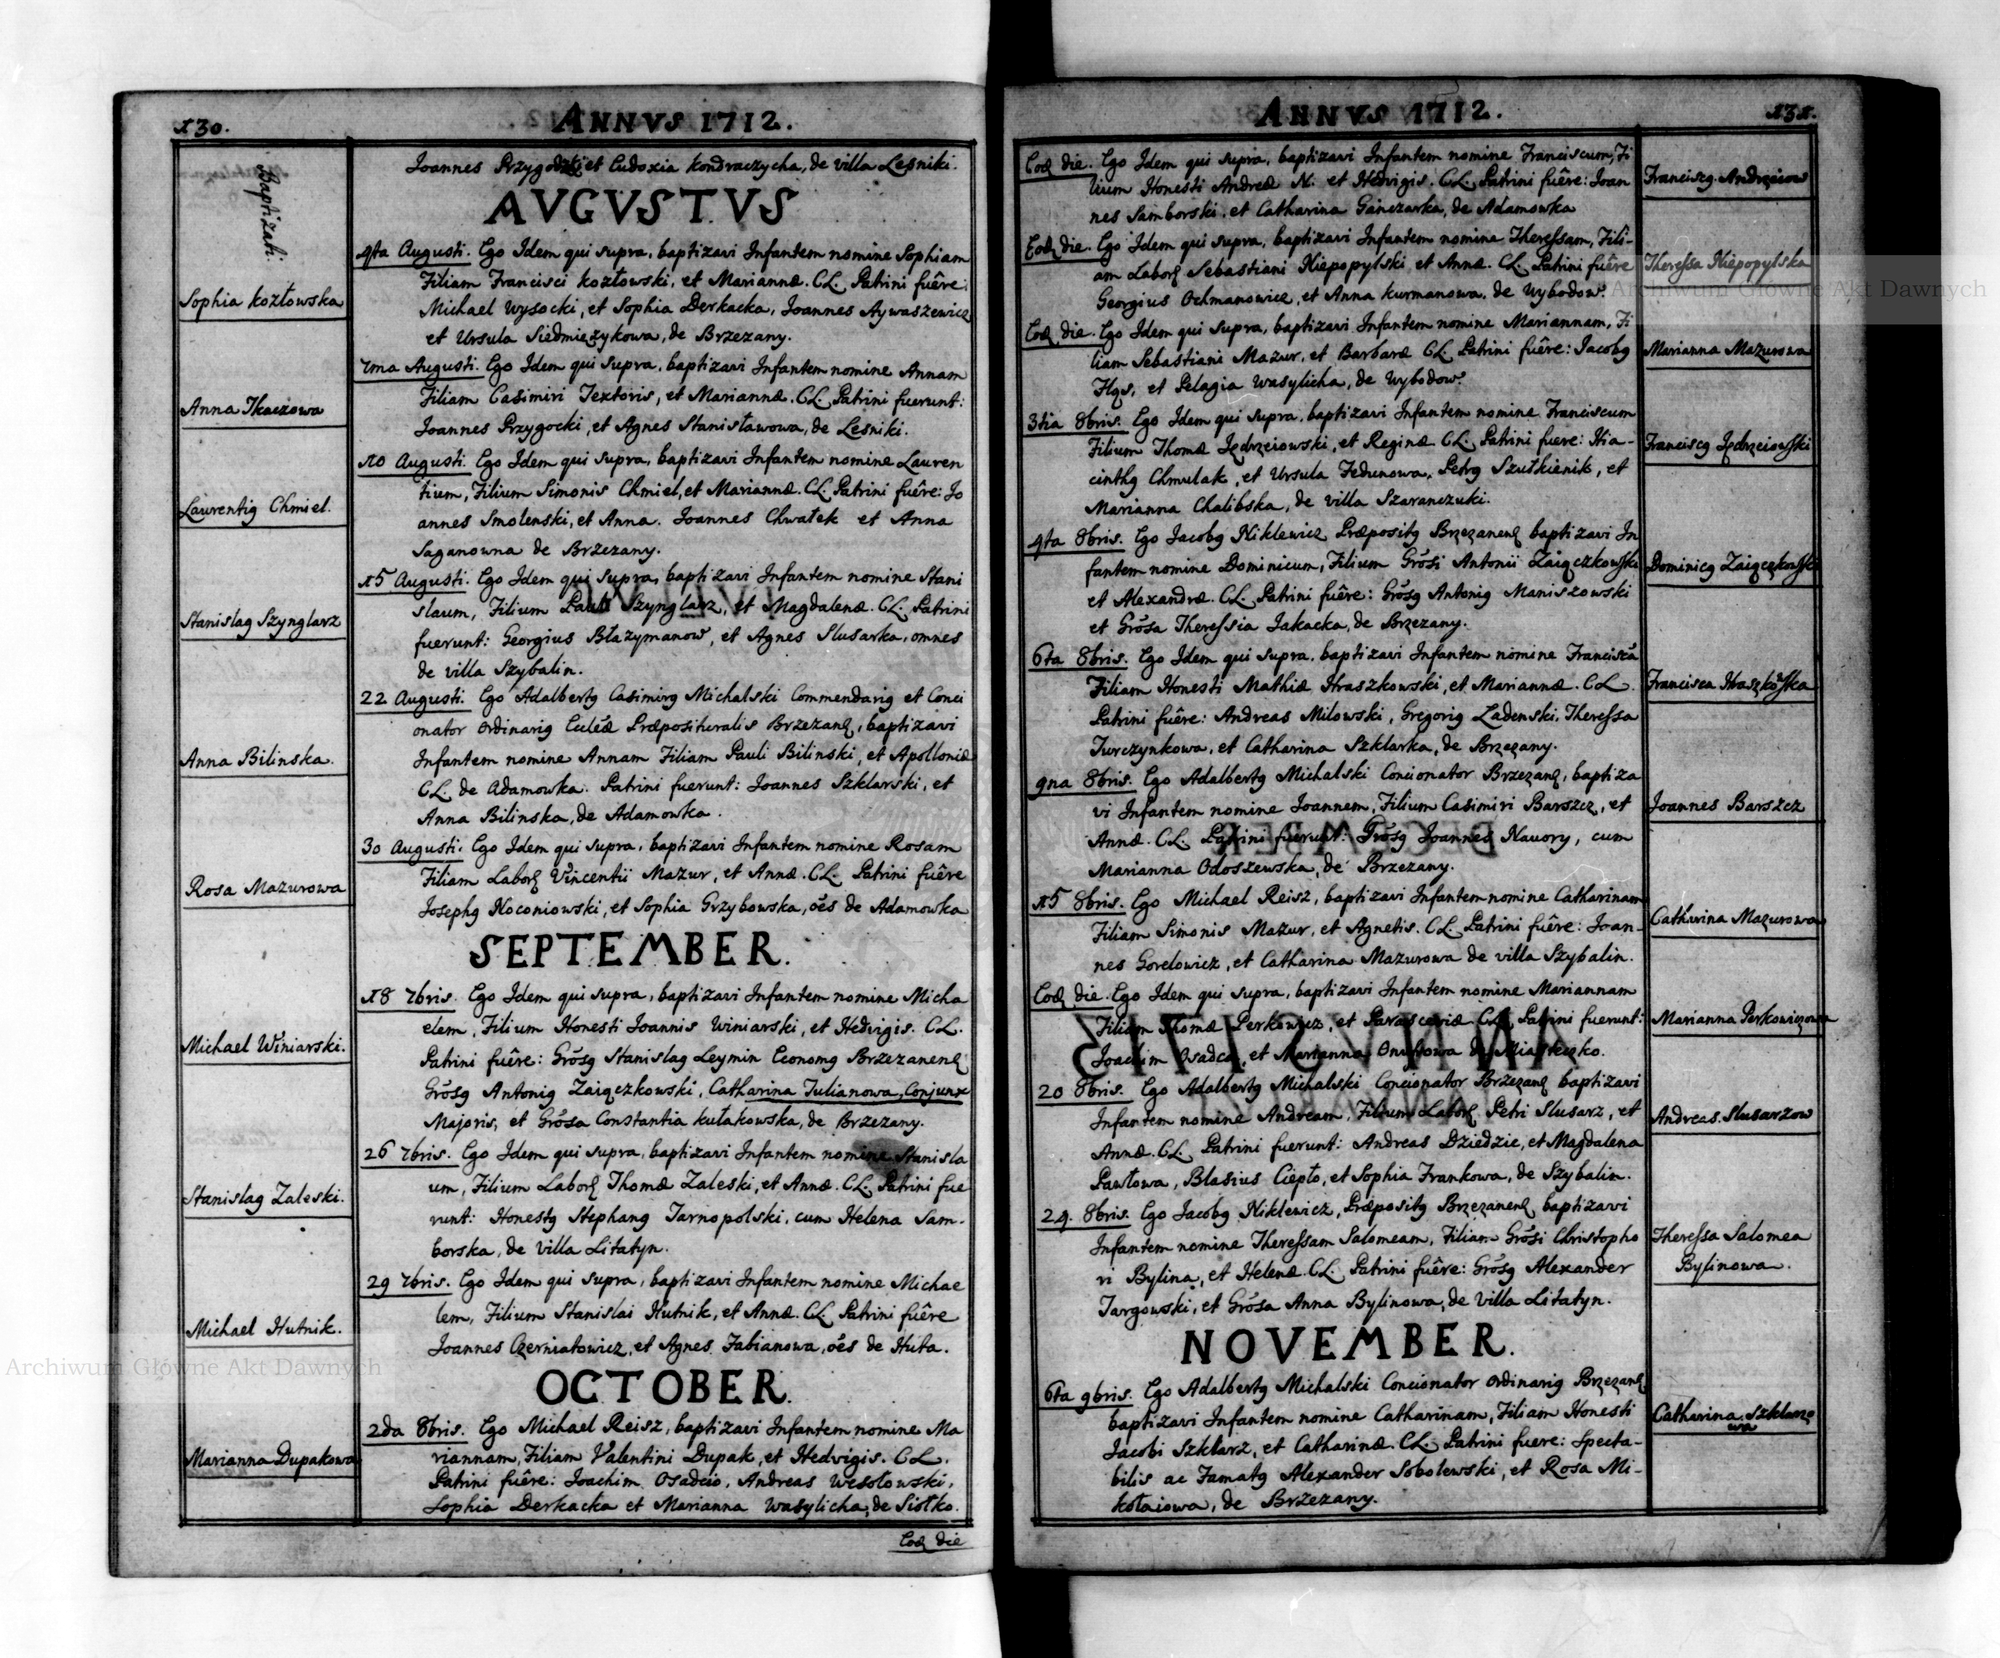 130.
ANNVS 1712.
Baptizati.
Joannes Przygodzki et Eudoxia Kondraczycha, de villa Lesniki.
AVGVSTVS
4ta Augusti. Ego Idem qui supra, baptizavi Infantem nomine Sophiam
Sophia Kozłowska
Filiam Francisci Kozłowski, et Mariannæ. CL. Patrini fuêre:
Michael Wysocki, et Sophia Derkacka, Joannes Aywaszewicz
et Ursula Siedmiężykowa, de Brzezany.
7ma Augusti. Ego Idem qui supra, baptizavi Infantem nomine Annam
Anna Tkaczowa
Filiam Casimiri Textoris, et Mariannæ. CL. Patrini fuerunt:
Joannes Przygocki, et Agnes Stanisławowa, de Lesniki.
10 Augusti. Ego Idem qui supra, baptizavi Infantem nomine Lauren
Laurentig Chmiel.
tium, Filium Simonis Chmiel, et Mariannæ. CL. Patrini fuêre: Jo
annes Smolenski, et Anna. Joannes Chwałek et Anna
Saganowna de Brzezany.
15 Augusti. Ego Idem qui supra, baptizavi Infantem nomine Stani
Stanislag Szynglarz
slaum, Filium Pauli Szynglarz, et Magdalenæ. CL. Patrini
fuerunt: Georgius Błazymanow, et Agnes Slusarka, omnes
de villa Szybalin.
22 Augusti. Ego Adalbertg Casimirg Michalski Commendarig et Conci
onator Ordinarig Ecleæ Præposituralis Brzezanę, baptizavi
Anna Bilinska.
Infantem nomine Annam Filiam Pauli Bilinski, et Apolloniæ
CL. de Adamowka. Patrini fuerunt: Joannes Szklarski, et
Anna Bilinska, de Adamowka.
30 Augusti. Ego Idem qui supra, baptizavi Infantem nomine Rosam
Rosa Mazurowa
Filiam Laborę Vincentii Mazur, et Annæ. CL. Patrini fuêre
Josephg Noconiowski, et Sophia Grzybowska, oẽs de Adamowka
SEPTEMBER.
18 7bris. Ego Idem qui supra, baptizavi Infantem nomine Micha
elem, Filium Honesti Joannis Winiarski, et Hedvigis. CL.
Michael Winiarski.
Patrini fuêre: Grõsg Stanislag Leymin Economg Brzezanenę
Grõsg Antonig Zaiączkowski, Catharina Julianowa, Conjunx
Majoris, et Grõsa Constantia Kułakowska, de Brzezany.
26 7bris. Ego Idem qui supra, baptizavi Infantem nomine Stanisla
Stanislag Zaleski.
um, Filium Laborę Thomæ Zaleski, et Annæ. CL. Patrini fue
runt: Honestg Stephang Tarnopolski, cum Helena Sam-
borska, de villa Litatyn.
29 7bris. Ego Idem qui supra, baptizavi Infantem nomine Michae
Michael Hutnik.
lem, Filium Stanislai Hutnik, et Annæ. CL. Patrini fuêre
Joannes Czerniatowicz, et Agnes Fabianowa, oẽs de Huta.
OCTOBER.
2da 8bris. Ego Michael Reisz, baptizavi Infantem nomine Ma
Marianna Dupakowa
riannam, Filiam Valentini Dupak, et Hedvigis. CL.
Patrini fuêre: Joachim Osadcio, Andreas Wesołowski,
Sophia Derkacka et Marianna Wasylicha, de Siołko.
Eodę die
ANNVS 1712.
131.
Eodę die. Ego Idem qui supra, baptizavi Infantem nomine Franciscum, Fi
Franciscg Andrzeiow
lium Honesti Andreæ N. et Hedvigis. CL. Patrini fuêre: Joan
nes Samborski, et Catharina Ganczarka, de Adamowka
Eodę die. Ego Idem qui supra, baptizavi Infantem nomine Theressam, Fili-
Theressa Niepopylska
am Laborę Sebastiani Niepopylski, et Annæ. CL. Patrini fuêre
Georgius Ochmanowicz, et Anna Kurmanowa, de Wybodow.
Eodę die. Ego Idem qui supra, baptizavi Infantem nomine Mariannam, Fi
Marianna Mazurowa
liam Sebastiani Mazur, et Barbaræ CL. Patrini fuêre: Jacobg
et Pelagia Wasylicha, de Wybodow.
3tia 8bris. Ego Idem qui supra, baptizavi Infantem nomine Franciscum
Franciscg Jędrzeiowski
Filium Thomæ Jędrzeiowski, et Reginæ CL. Patrini fuere: Hia-
cinthg Chmulak, et Ursula Fedunowa, Petrg Szułkienik, et
Marianna Chalibska, de villa Szaranczuki.
4ta 8bris. Ego Jacobg Niklewicz Præpositg Brzezanenę baptizavi In
Dominicg Zaiączkowski
fantem nomine Dominicum, Filium Grõsi Antonii Zaiączkowski
et Alexandræ. CL. Patrini fuêre: Grõsg Antonig Maniszowski
et Grõsa Theressia Jakacka, de Brzezany.
6ta 8bris. Ego Idem qui supra, baptizavi Infantem nomine Franciscã
Francisca Hraszkowska
Filiam Honesti Mathiæ Hraszkowski, et Mariannæ. CL.
Patrini fuêre: Andreas Milowski, Gregorig Ladenski, Theressa
Turczynkowa, et Catharina Szklarka, de Brzezany.
9na 8bris. Ego Adalbertg Michalski Concionator Brzezanę, baptiza
Joannes Barszcz
vi Infantem nomine Joannem, Filium Casimiri Barszcz, et
Annæ. CL. Patrini fuerunt: Grõsg Joannes Nawory, cum
Marianna Odoszewska, de Brzezany.
15 8bris. Ego Michael Reisz, baptizavi Infantem nomine Catharinam
Catharina Mazurowa
Filiam Simonis Mazur, et Agnetis. CL. Patrini fuêre: Joan-
nes Gorelowicz, et Catharina Mazurowa de villa Szybalin.
Eodę die. Ego Idem qui supra, baptizavi Infantem nomine Mariannam
Marianna Perkowiczowa
Filiam Thomæ Perkowicz, et Parasceviæ CL. Patrini fuerunt:
Joachim Osadca, et Marianna Onufrowa de Miasteczko.
20 8bris. Ego Adalbertg Michalski Concionator Brzezanę baptizavi
Andreas Slusarzow
Infantem nomine Andream, Filium Laborę Petri Slusarz, et
Annæ. CL. Patrini fuerunt: Andreas Dziedzic, et Magdalena
Pawłowa, Blasius Ciepło, et Sophia Frankowa, de Szybalin.
24. 8bris. Ego Jacobg Niklewicz, Præpositg Brzezanenę baptizavi
Theressa Salomea
Bylinowa.
Infantem nomine Theressam Salomeam, Filiam Grõsi Christopho
ri Bylina, et Helenæ. CL. Patrini fuêre: Grõsg Alexander
Targowski, et Grõsa Anna Bylinowa, de villa Litatyn.
NOVEMBER.
6ta 9bris. Ego Adalbertg Michalski Concionator Ordinarig Brzezanę
Catharina Szklarzo
wa
baptizavi Infantem nomine Catharinam, Filiam Honesti
Jacobi Szkłarz, et Catharinæ. CL. Patrini fuere: Specta-
bilis ac Famatg Alexander Sobolewski, et Rosa Mi-
kołaiowa, de Brzezany.
Archiwum Główne Akt Dawnych
Archiwum Główne Akt Dawnych